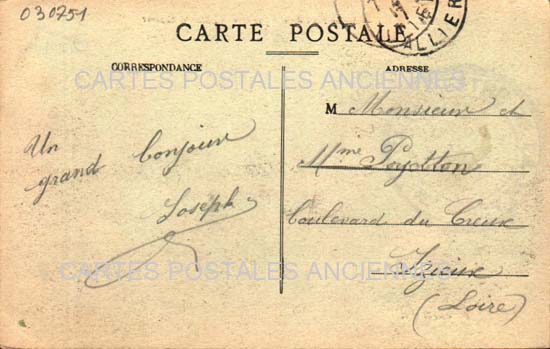 030751
ALLIER
CARTE POSTALE
CORRESPONDANCE
ADRESSE
CARTES POSTALES ANCIENNES
M Monsieur et
Mme Payotton
boulevard du Creux
Izieux
(Loire)
Un
grand bonjour
Joseph
CARTES POSTALES ANCIENNES